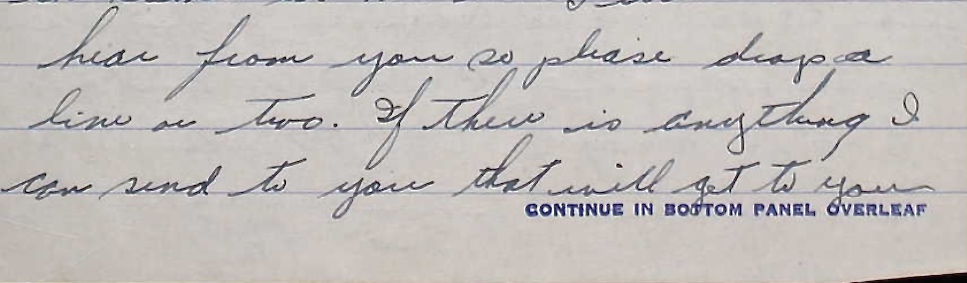 hear from you so please drop a
line or two. If there is anything I
can send to you that will get to you
CONTINUE IN BOTTOM PANEL OVERLEAF